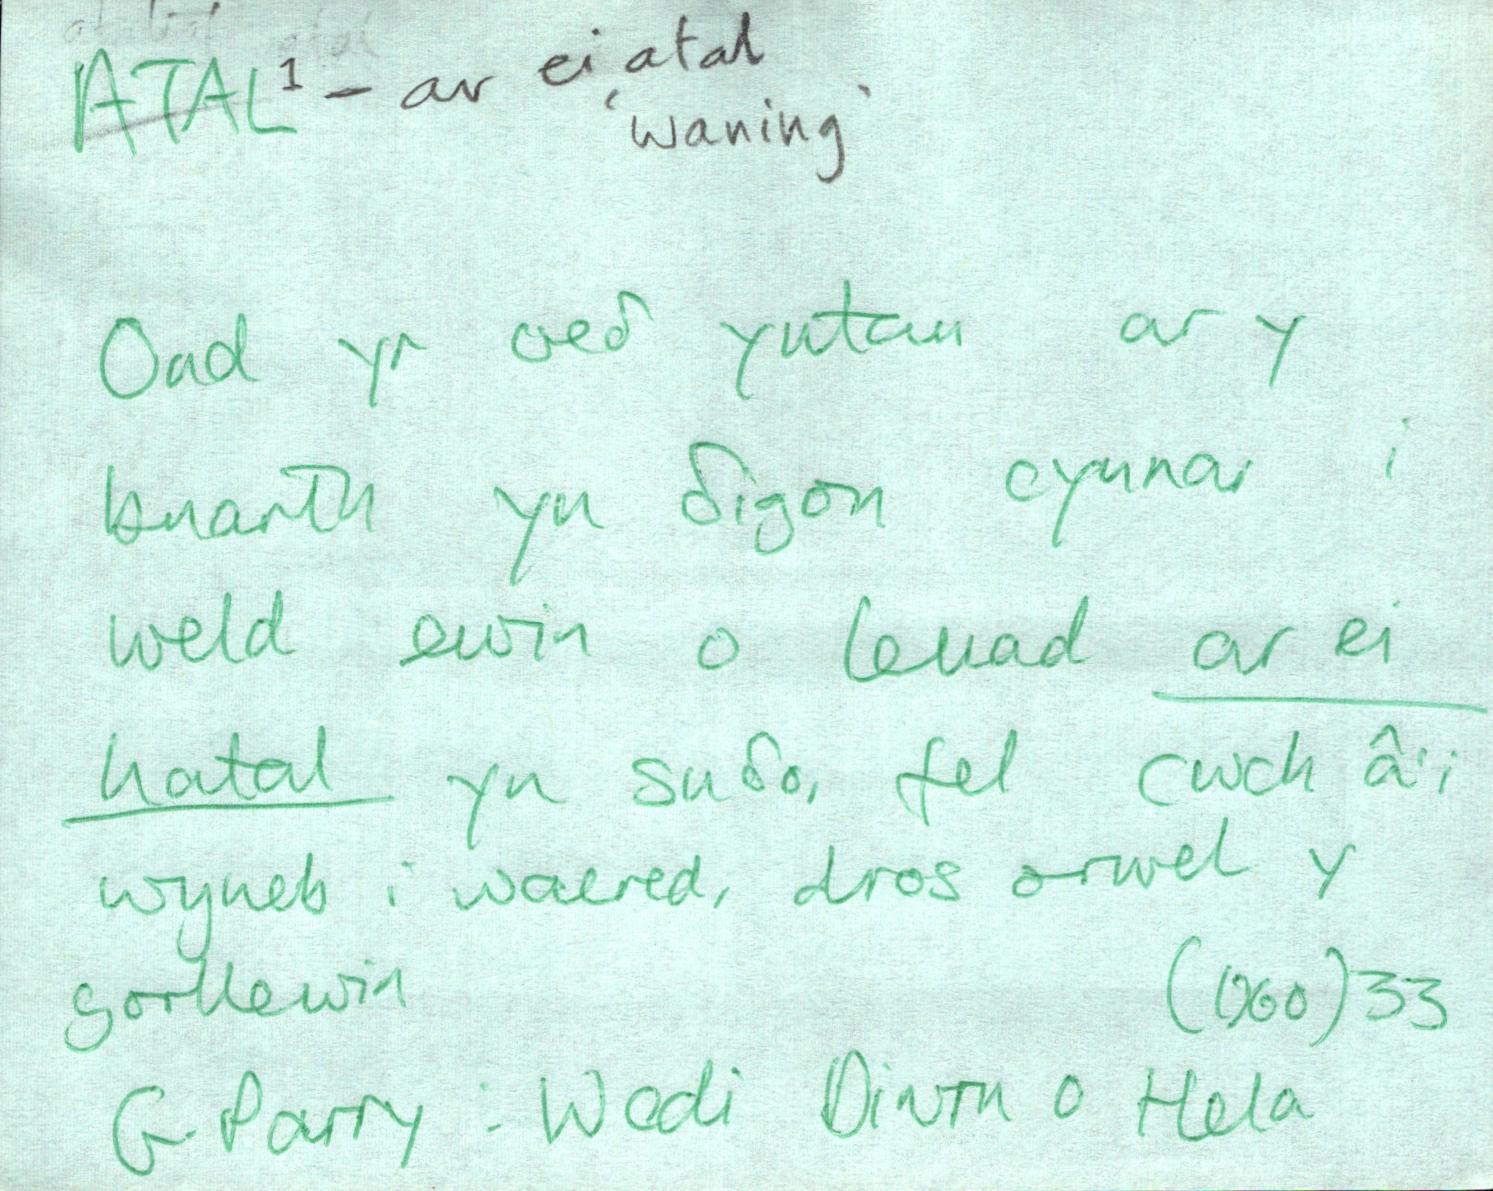 ATAL¹ – ar ei atal
'waning'
Ond yr oeδ yntau ar y
buarth yn δigon cynnar i
weld ewin o leuad ar ei
hatal yn suδo, fel cwch â'i
wyneb i waered, dros orwel y
gorllewin (1960) 33
G. Parry : Wedi Diwrn o Hela